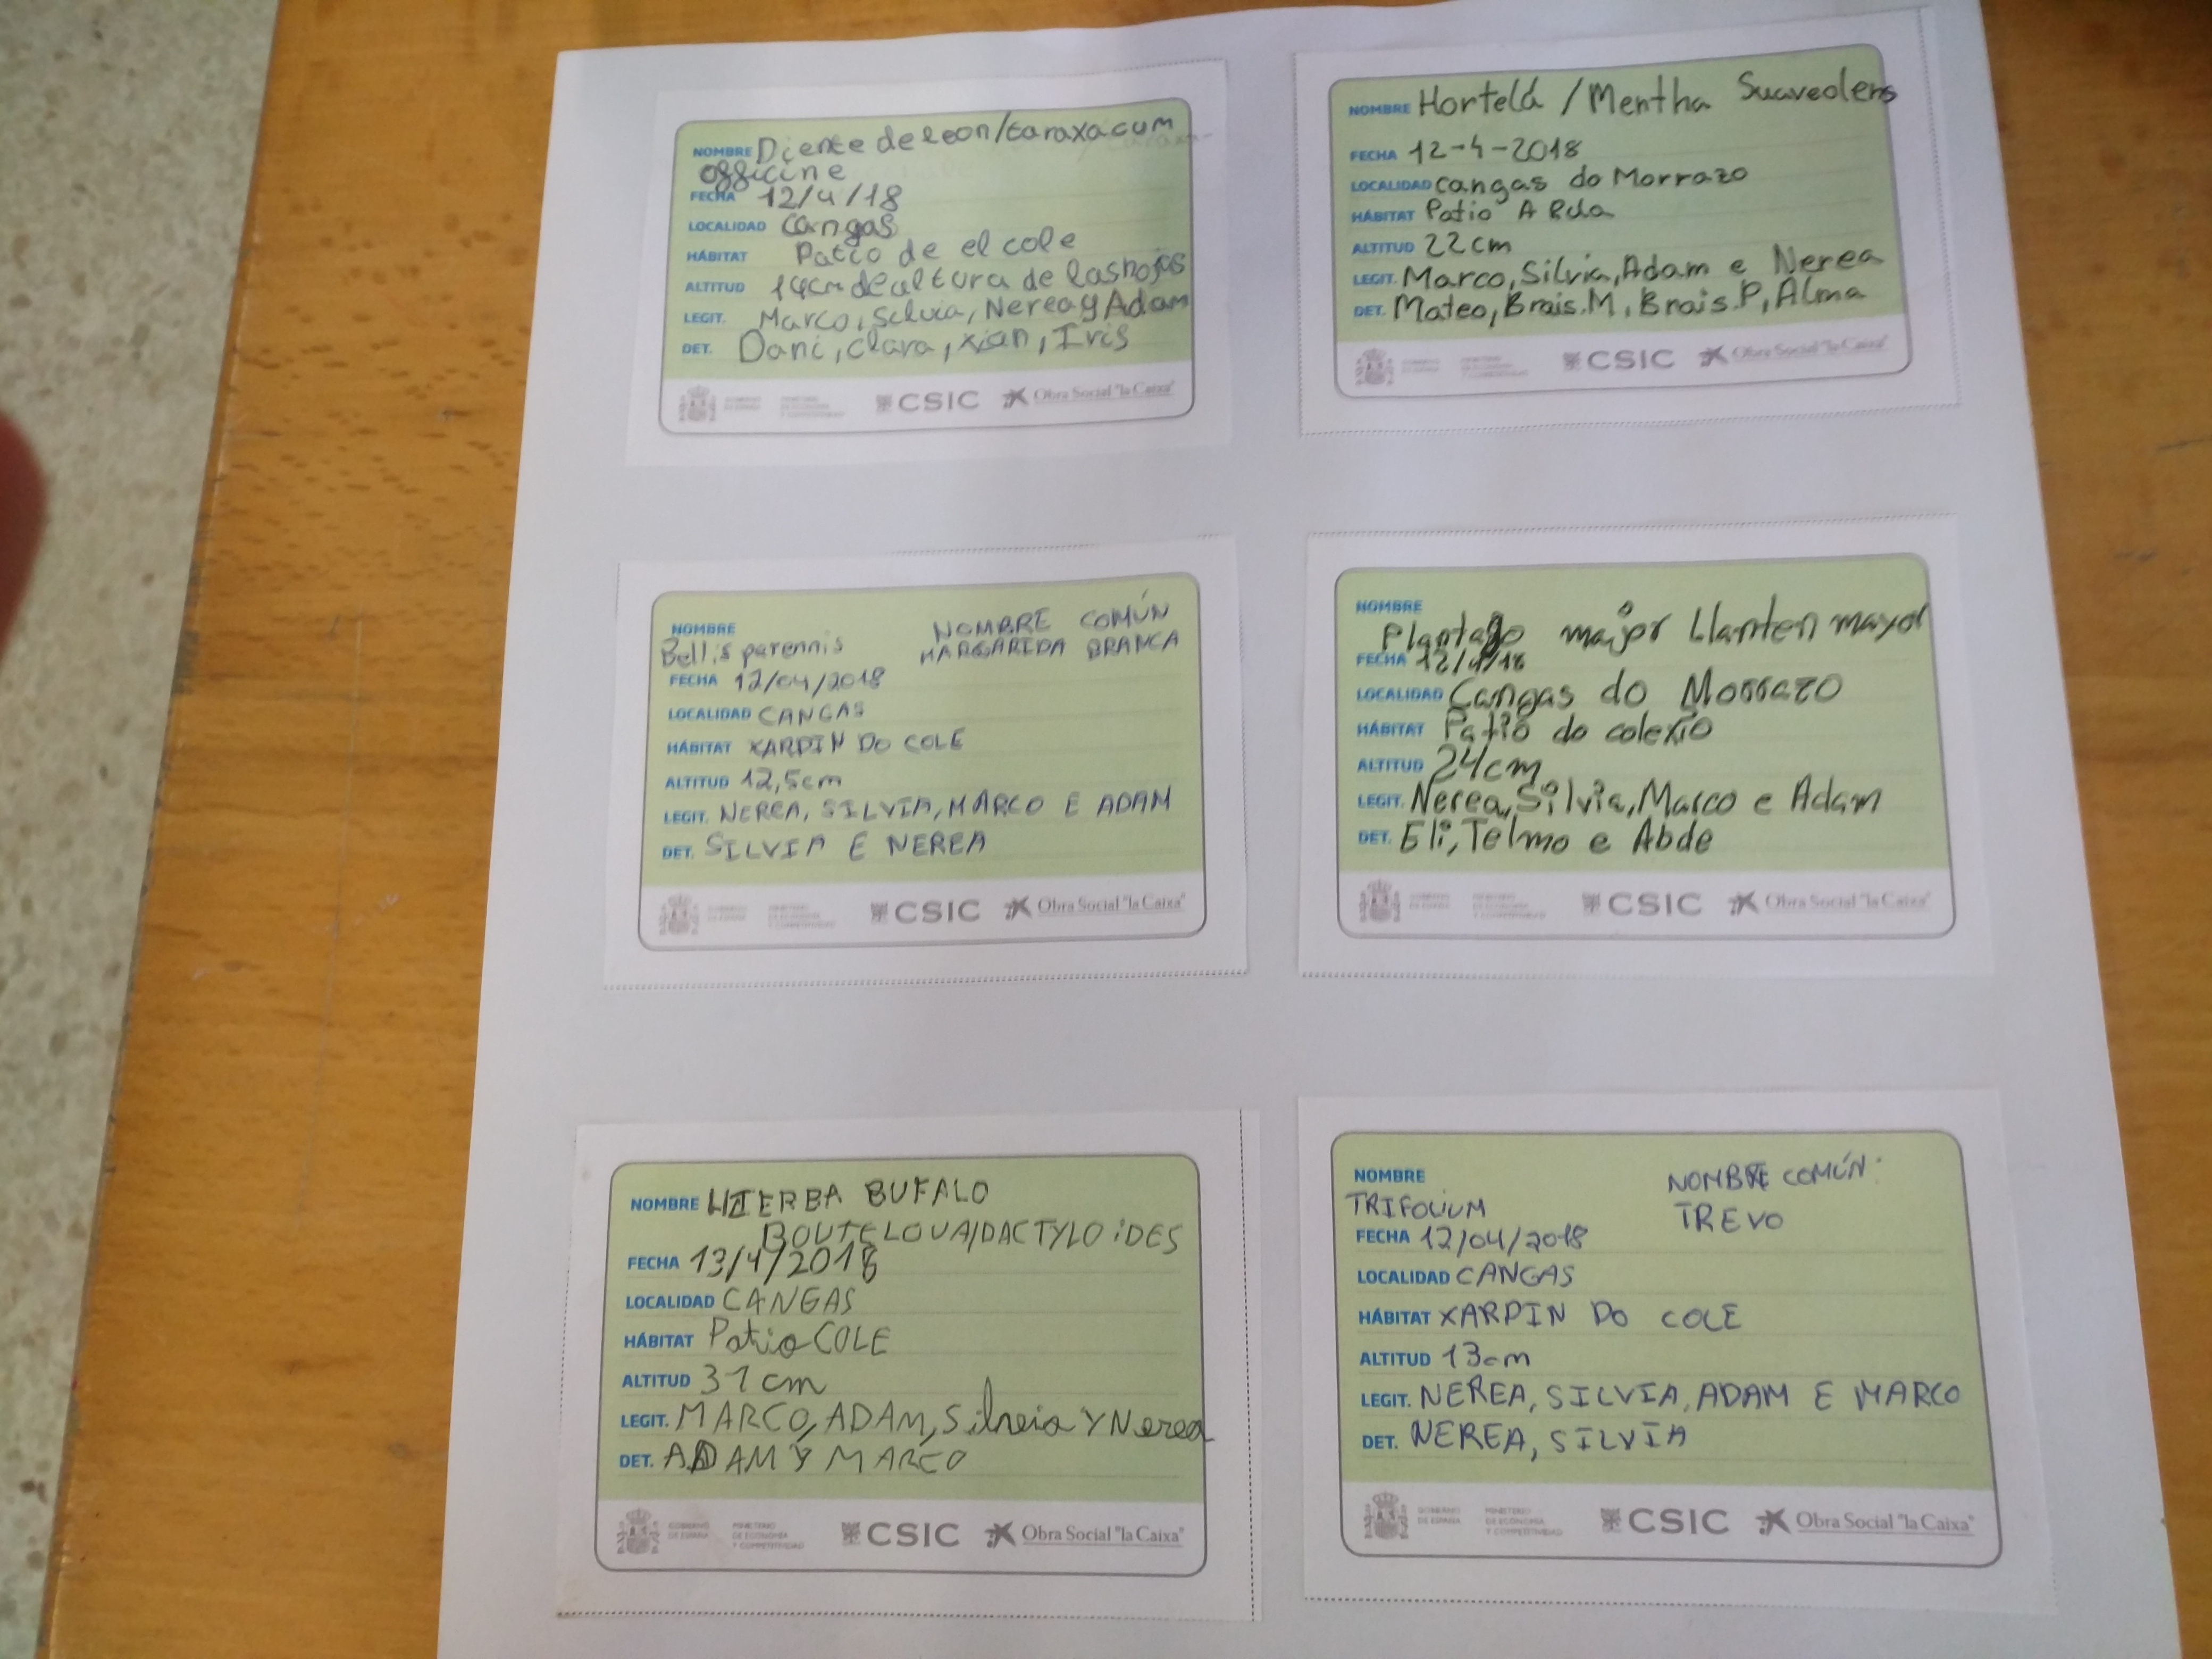 NOMBRE Diente de leon/taraxacum
officine
FECHA 12/4/18
LOCALIDAD Cangas
HÁBITAT Patio de el cole
ALTITUD 14cm de altura de las hojas
LEGIT. Marco, Silvia, Nerea y Adam
DET. Dani, Clara, Xian, Iris
CSIC Obra Social "la Caixa"
NOMBRE Hortelá / Mentha Suaveolens
FECHA 12-4-2018
LOCALIDAD Cangas do Morrazo
HÁBITAT Patio A
ALTITUD 22cm
LEGIT. Marco, Silvia, Adam e Nerea
DET. Mateo, Brais.M, Brais.P, Alma
CSIC Obra Social "la Caixa"
NOMBRE NOMBRE COMÚN
Bellis parennis MARGARIDA BRANCA
FECHA 12/04/2018
LOCALIDAD CANGAS
HÁBITAT XARDIN DO COLE
ALTITUD 12,5cm
LEGIT. NEREA, SILVIA, MARCO E ADAM
DET. SILVIA E NEREA
CSIC Obra Social "la Caixa"
NOMBRE
Plantago major Llanten mayor
FECHA 12/4/18
LOCALIDAD Cangas do Morrazo
HÁBITAT Patio do colexio
ALTITUD 24cm
LEGIT. Nerea, Silvia, Marco e Adam
DET. Eli, Telmo e Abde
CSIC Obra Social "la Caixa"
NOMBRE HIERBA BUFALO
BOUTELOUA/DACTYLOiDES
FECHA 13/4/2018
LOCALIDAD CANGAS
HÁBITAT Patio COLE
ALTITUD 31 cm
LEGIT. MARCO, ADAM, Silveia Y Nerea
DET. ADAM Y MARCO
GOBIERNO DE ESPAÑA MINISTERIO DE ECONOMÍA Y COMPETITIVIDAD CSIC Obra Social "la Caixa"
NOMBRE NOMBRE COMÚN:
TRIFOLIUM TREVO
FECHA 12/04/2018
LOCALIDAD CANGAS
HÁBITAT XARDIN DO COLE
ALTITUD 13cm
LEGIT. NEREA, SILVIA, ADAM E MARCO
DET. NEREA, SILVIA
GOBIERNO DE ESPAÑA MINISTERIO DE ECONOMÍA Y COMPETITIVIDAD CSIC Obra Social "la Caixa"